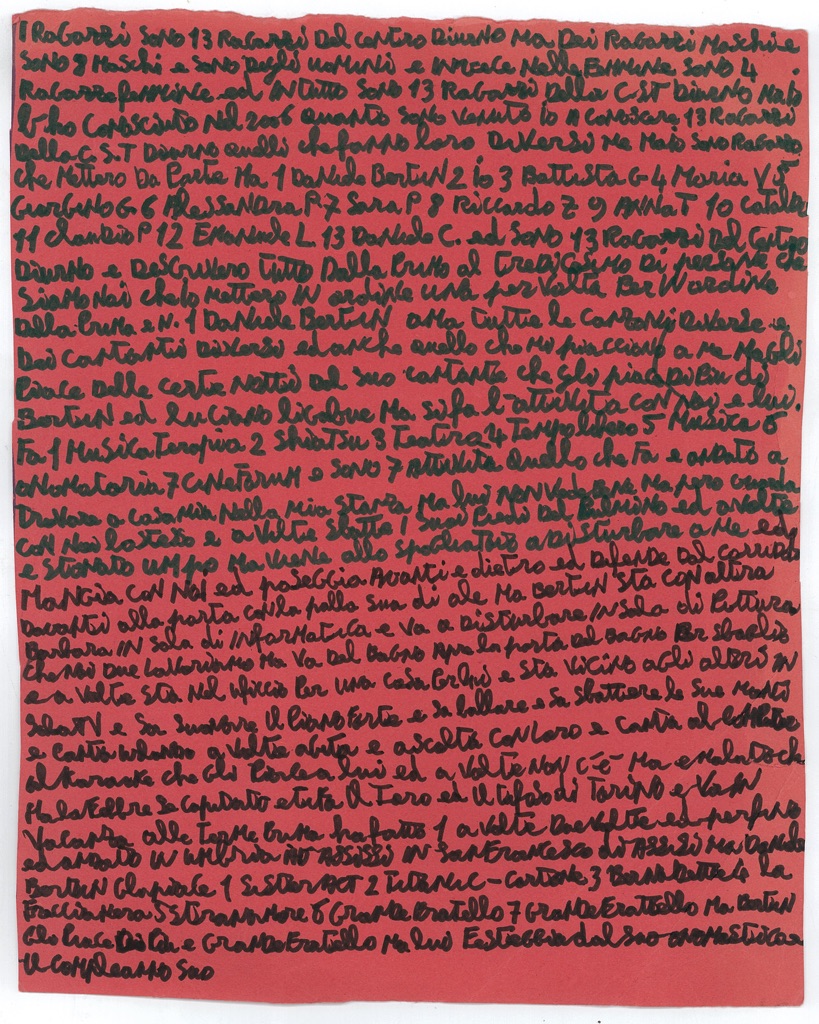 I RAGAZZI SONO 13 RAGAZZI DEL CENTRO DIURNO MA DEI RAGAZZI MASCHI e
SONO 9 MASCHI e SONO DEGLI UOMINI e INVECE NELLE FEMMINE SONO 4
RAGAZZE FEMMINE ed IN TUTTO SONO 13 RAGAZZI DELLA CST DIURNO
ho CONOSCIUTO NEL 2006 QUANTO SONO VENUTO IO A CONOSCERE 13 RAGAZZI
DELLA C.S.T DIURNO quelli che fanno loro DIVERSI SONO RAGAZZI
che METTERO DA PARTE MA 1 DANIELE BERTUN 2 io 3 BATTISTA G 4 MARIA V 5
G 6 ALESSANDRA P 7 SARA P 8 RICCARDO Z 9 ANNA T 10
11 CLAUDIO P 12 EMANUELE L. 13 DANIELE C. ed SONO 13 RAGAZZI DEL CENTRO
DIURNO e DESCRIVERO TUTTO DALLA PRIMO AL TREDICESIMO DI PERSONE che
SIAMO NOI che lo METTERO IN ORDINE UNA per VOLTA PER IN ORDINE
DALLA PRIMA e N. 1 DANIELE BERTUN AMA TUTTE le CANZONI DIVERSE e
DEI CANTANTI DIVERSI ed anche quello che MI piacciono A ME MA gli
PIACE DELLE CERTE NOTTI DEL SUO CANTANTE che gli piace DI PIU di
BERTUN ed LUCIANO LIGABUE MA SI fa L'ATTIVITA CON NOI e LUI.
FA 1 MUSICATERAPIA 2 SHIATSU 3 TEATRO 4 TEMPO LIBERO 5 MUSICA 6
7 CINEFORUM e SONO 7 ATTIVITA quello che FA e ANDATO A
TROVARE A CASA MIA NELLA MIA STANZA MA lui NON MA PERO
CON NOI e A VOLTE I SUOI PIEDI DEL ed A VOLTE
e STONATO UN PO MA VIENE ALLO SPOGLIATOIO A DISTURBARE A ME ed
MANGIA CON NOI ed PASSEGGIA AVANTI e DIETRO ed DIFENDE DAL CORRIDOIO
DAVANTI alla PORTA CON LA PALLA SUA di ALE MA BERTUN STA CON ALTRA
BARBARA IN SALA di INFORMATICA e VA A DISTURBARE IN SALA di PITTURA
che NOI DUE LAVORIAMO MA VA DEL BAGNO APRE LA PORTA DEL BAGNO PER SBAGLIO
e A VOLTE STA NEL UFFICIO PER UNA COSA e STA VICINO AGLI ALTRI IN
SALA TV e SA SUONARE IL PIANOFORTE e SA BALLARE e SA SBATTERE le SUE MANI
e A VOLTE e ASCOLTA CON LORO e CANTA AL COMPUTER
AL KARAOKE che GLI PIACE A LUI ed A VOLTE NON C'È MA e MALATO che
HA LA FEBBRE e TIFA IL TORO ed IL TIFOSO di TORINO e VA IN
VACANZA alle TERME PRIMA ha fatto 1 A VOLTE ed PERFINO
ed ANDATO IN UMBRIA AD ASSISI IN SAN FRANCESCO di ASSISI MA DANIELE
BERTUN GLI PIACE 1 SISTER ACT 2 TITANIC – CARTONE 3 4 LA
FACCIA NERA 5 STRANAMORE 6 GRANDE FRATELLO 7 GRANDE FRATELLO MA BERTUN
GLI PIACE e GRANDE FRATELLO MA LUI FESTEGGIA dal SUO ONOMASTICO e
IL COMPLEANNO SUO